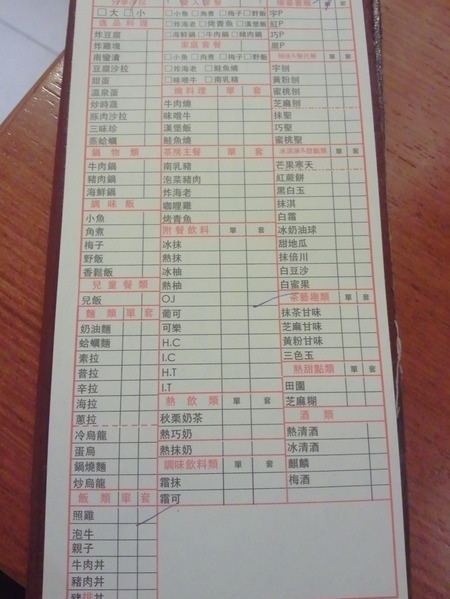 □大□小
逸品料理
炸豆腐
炸雞塊
南蠻漬
豆腐沙拉
甜蛋
溫泉蛋
炒時蔬
豚肉沙拉
三味珍
蒸蛤蠣
鍋物類
牛肉鍋
豬肉鍋
海鮮鍋
調味飯
小魚
角煮
梅子
野飯
香鬆飯
兒童餐類
兒飯
麵類 單 套
奶油麵
蛤蠣麵
素拉
昔拉
辛拉
海拉
蔥拉
冷烏龍
蛋烏
鍋燒麵
炒烏龍
飯類 單 套
照雞
泡牛
親子
牛肉丼
豬肉丼
□小魚 □角煮 □梅子□野飯
□炸海老 □烤青魚 □漢堡飯
□海鮮鍋 □牛肉鍋 □豬肉鍋
家庭套餐
□小魚 □角煮 □梅子□野飯
□炸海老 □鮭魚燒
□味噌牛 □南乳豬
燒料理 單 套
牛肉燒
味噌牛
漢堡飯
鮭魚燒
茶房主餐 單 套
南乳豬
泡菜豬肉
炸海老
咖哩雞
烤青魚
附餐飲料 單 套
冰抹
熱抹
冰柚
熱柚
OJ
葡可
可樂
H.C
I.C
H.T
I.T
熱飲類 單 套
秋栗奶茶
熱巧奶
熱抹奶
調味飲料類 單 套
霜抹
霜可
宇P
紅P
巧P
黑P
宇刨
黃粉刨
蜜桃刨
芝麻刨
抹聖
巧聖
蜜桃聖
芒果寒天
紅蕨餅
黑白玉
抹淇
白霜
冰奶油球
甜地瓜
抹倍川
白豆沙
白蜜果
茶藝趣類 單 套
抹茶甘味
芝麻甘味
黃粉甘味
三色玉
熱甜點類 單 套
田園
芝麻糊
酒類
熱清酒
冰清酒
麒麟
梅酒